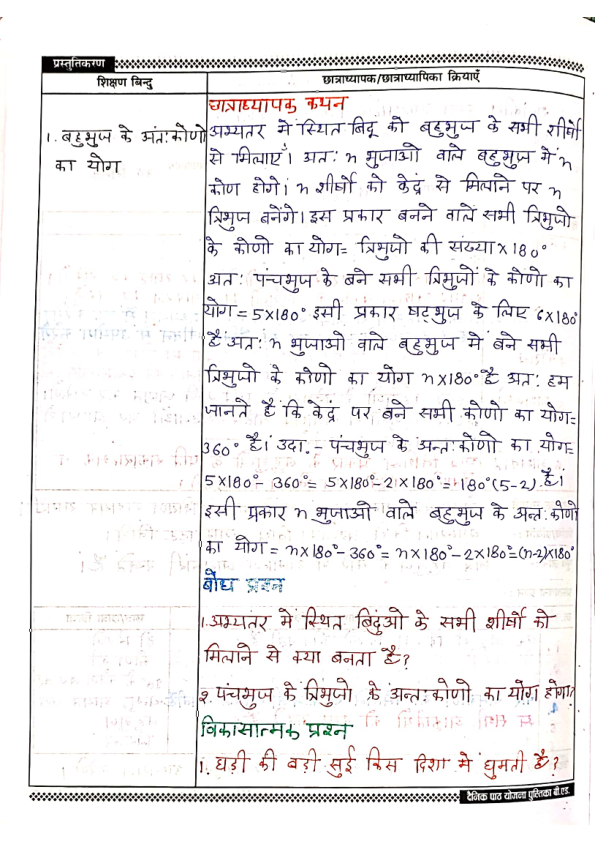 प्रस्तुतिकरण
शिक्षण बिन्दु
छात्राध्यापक/छात्राध्यापिका क्रियाएँ
छात्राध्यापक कथन
1. बहुभुज के अंतःकोणो
का योग
अभ्यतर में स्थित बिंदू को बहुभुज के सभी शीर्षो
से मिलाएँ। अतः n भुजाओ वाले बहुभुज में n
कोण होगे। n शीर्षो को केद्र से मिलाने पर n
त्रिभुज बनेंगे। इस प्रकार बनने वाले सभी त्रिभुजो
के कोणो का योग= त्रिभुजो की संख्या x 180°
अतः पंचभुज के बने सभी त्रिभुजों के कोणो का
योग = 5x180° इसी प्रकार षट्भुज के लिए 6x180°
है अतः n भुजाओ वाले बहुभुज में बने सभी
त्रिभुजो के कोणो का योग nx180° है अतः हम
जानते है कि केद्र पर बने सभी कोणो का योग=
360° है। उदा. - पंचभुज के अन्तःकोणो का योग=
5x180°- 360°= 5x180°-2x180°=180°(5-2) है।
इसी प्रकार n भुजाओ वाले बहुभुज के अन्तःकोणो
का योग = nx180°-360°= nx180°-2x180°=(n-2)x180°
बोध प्रश्न
1. अभ्यंतर में स्थित बिंदुओ के सभी शीर्षो को
मिलाने से क्या बनता है?
2 पंचभुज के त्रिभुजो के अन्तःकोणो का योग होगा?
विकासात्मक प्रश्न
1. घड़ी की बड़ी सुई किस दिशा में घुमती है?
दैनिक पाठ योजना पुस्तिका बी.एड.